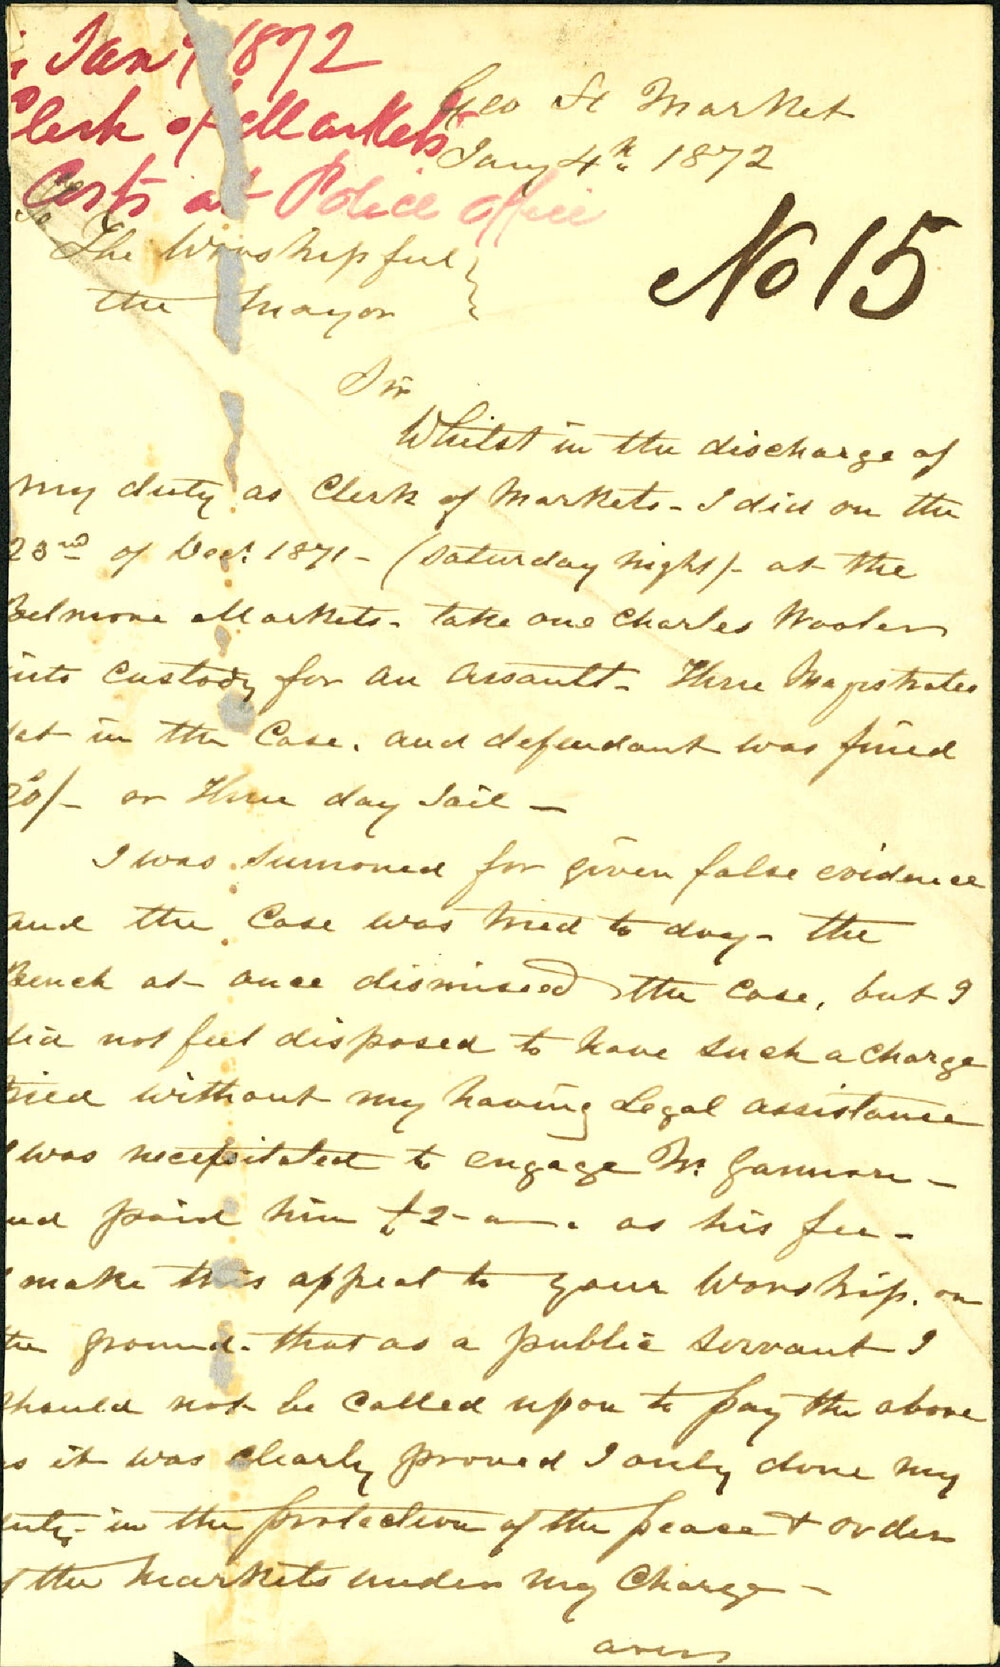 Jany 1872
Clerk of Markets
Costs at Police Office
Geo St Market
Jany 4th 1872
No 15
To
The Worshipful
the Mayor
Sir
Whilst in the discharge of
my duty as Clerk of Markets - I did on the
23rd of Decr. 1871 - (Saturday night) - at the
Belmore Markets - take one Charles Wooler
into custody for an assault - Three Magistrates
sat in the Case. and defendant was fined
20/- or Three day Jail -
I was Sumoned for given false evidence
and the Case was tried to day - the
Bench at once dismissed the Case, but I
did not feel disposed to have such a charge
tried without my having Legal assistance
I was necessitated to engage Mr Gannon -
and paid him £2 - as his fee -
I make this appeal to your Worship. on
the ground - that as a public servant I
should not be called upon to pay the above
as it was clearly proved I only done my
duty - in the protection of the peace & order
of the Markets under my Charge -